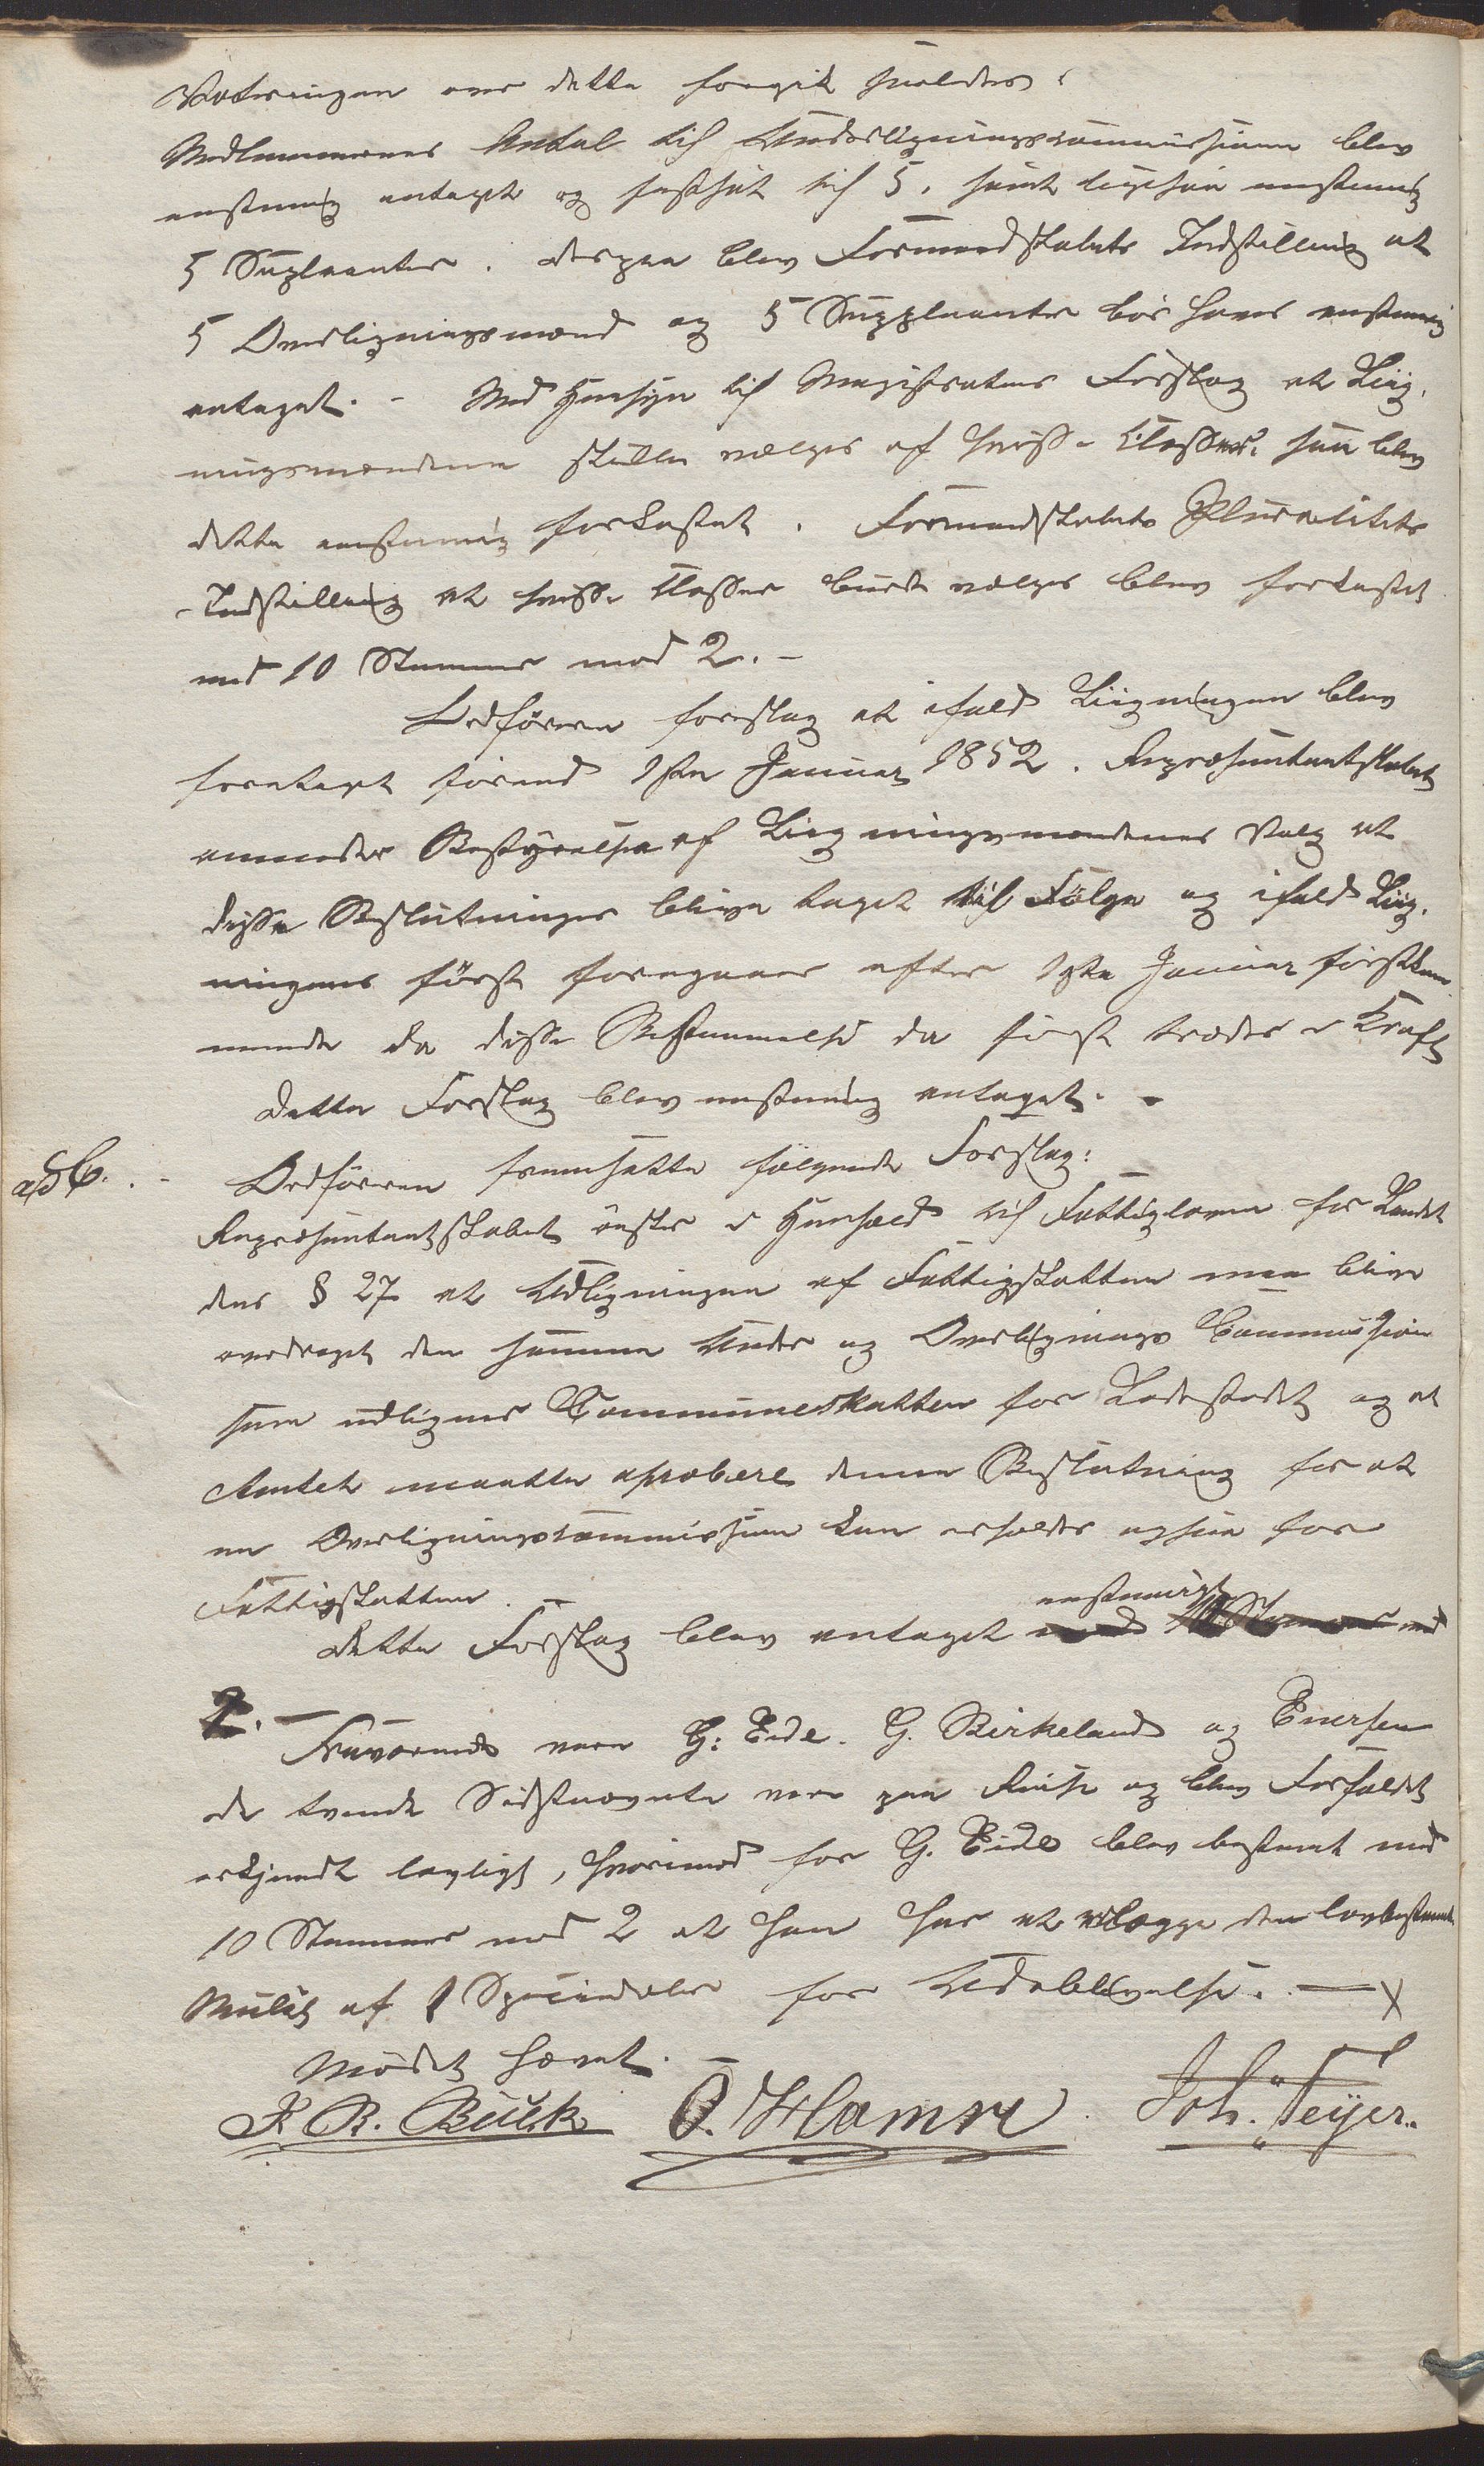 Voteringen over dette foregik saaledes:
Medlemmernes Antal til Underligningscommissionen blev
enstemig antaget og fastsat til 5, samt ligesaa enstemig
5 Supleanter. Derpaa blev Formandskabets Indstilling at
5 Overligningsmænd og 5 Suppleanter bør haves enstemig
antaget. - Med Hensyn til Magistratens Forslag at Lig,
ningsmændene skulle vælges af hvisse Classer, saa blev
dette enstemig forkastet. Formandskabets Pluralitets
Indstilling at hvisse Classer burde vælges blev forkastet
med 10 Stemmer mod 2. -
Ordføreren foreslog at ifald Ligningen blev
foretaget førend 1ste Januar 1852. Repræsentantskabet
anmoder Bestyrelsen af Ligningsmændenes Valg at
disse Beslutninger bliver taget til Følge og ifald Lig,
ningens først foregaaer efter 1ste Januar førstkom
mende da disse Bestemmelser da først træder i Kraft
Dette Forslag blev enstemig antaget. -
ad 6. . - Ordføreren fremsatte følgende Forslag:
Repræsentantskabet ønsker i Henhold til Fattigloven for Landet
dens § 27 at Udligningen af Fattigskatten maa blive
overdraget den samme Under og Overlignings Commission
som udligner Communeskatten for Ladestedet og at
Amtet maatte aprobere denne Beslutning for at
en Overligningscommission kan erholdes ogsaa for
Fattigskatten. -
enstemigt
Dette Forslag blev antaget med 10 Stemmer mod
2. -
Fraværende vare G: Eide. G. Birkeland og Enersen
de tvende Sidstnævnte vare paa Reise og blev Forfaldet
erkjendt lovligt, hvorimod for G. Eide blev bestemt med
10 Stemmer mod 2 at han har at erlægge den lovbestemte
Mulct af 1 Speciedaler for Udeblivelse. -
Mødet hævet. -
J B. Buck O. Hamre Joh. Feyer.